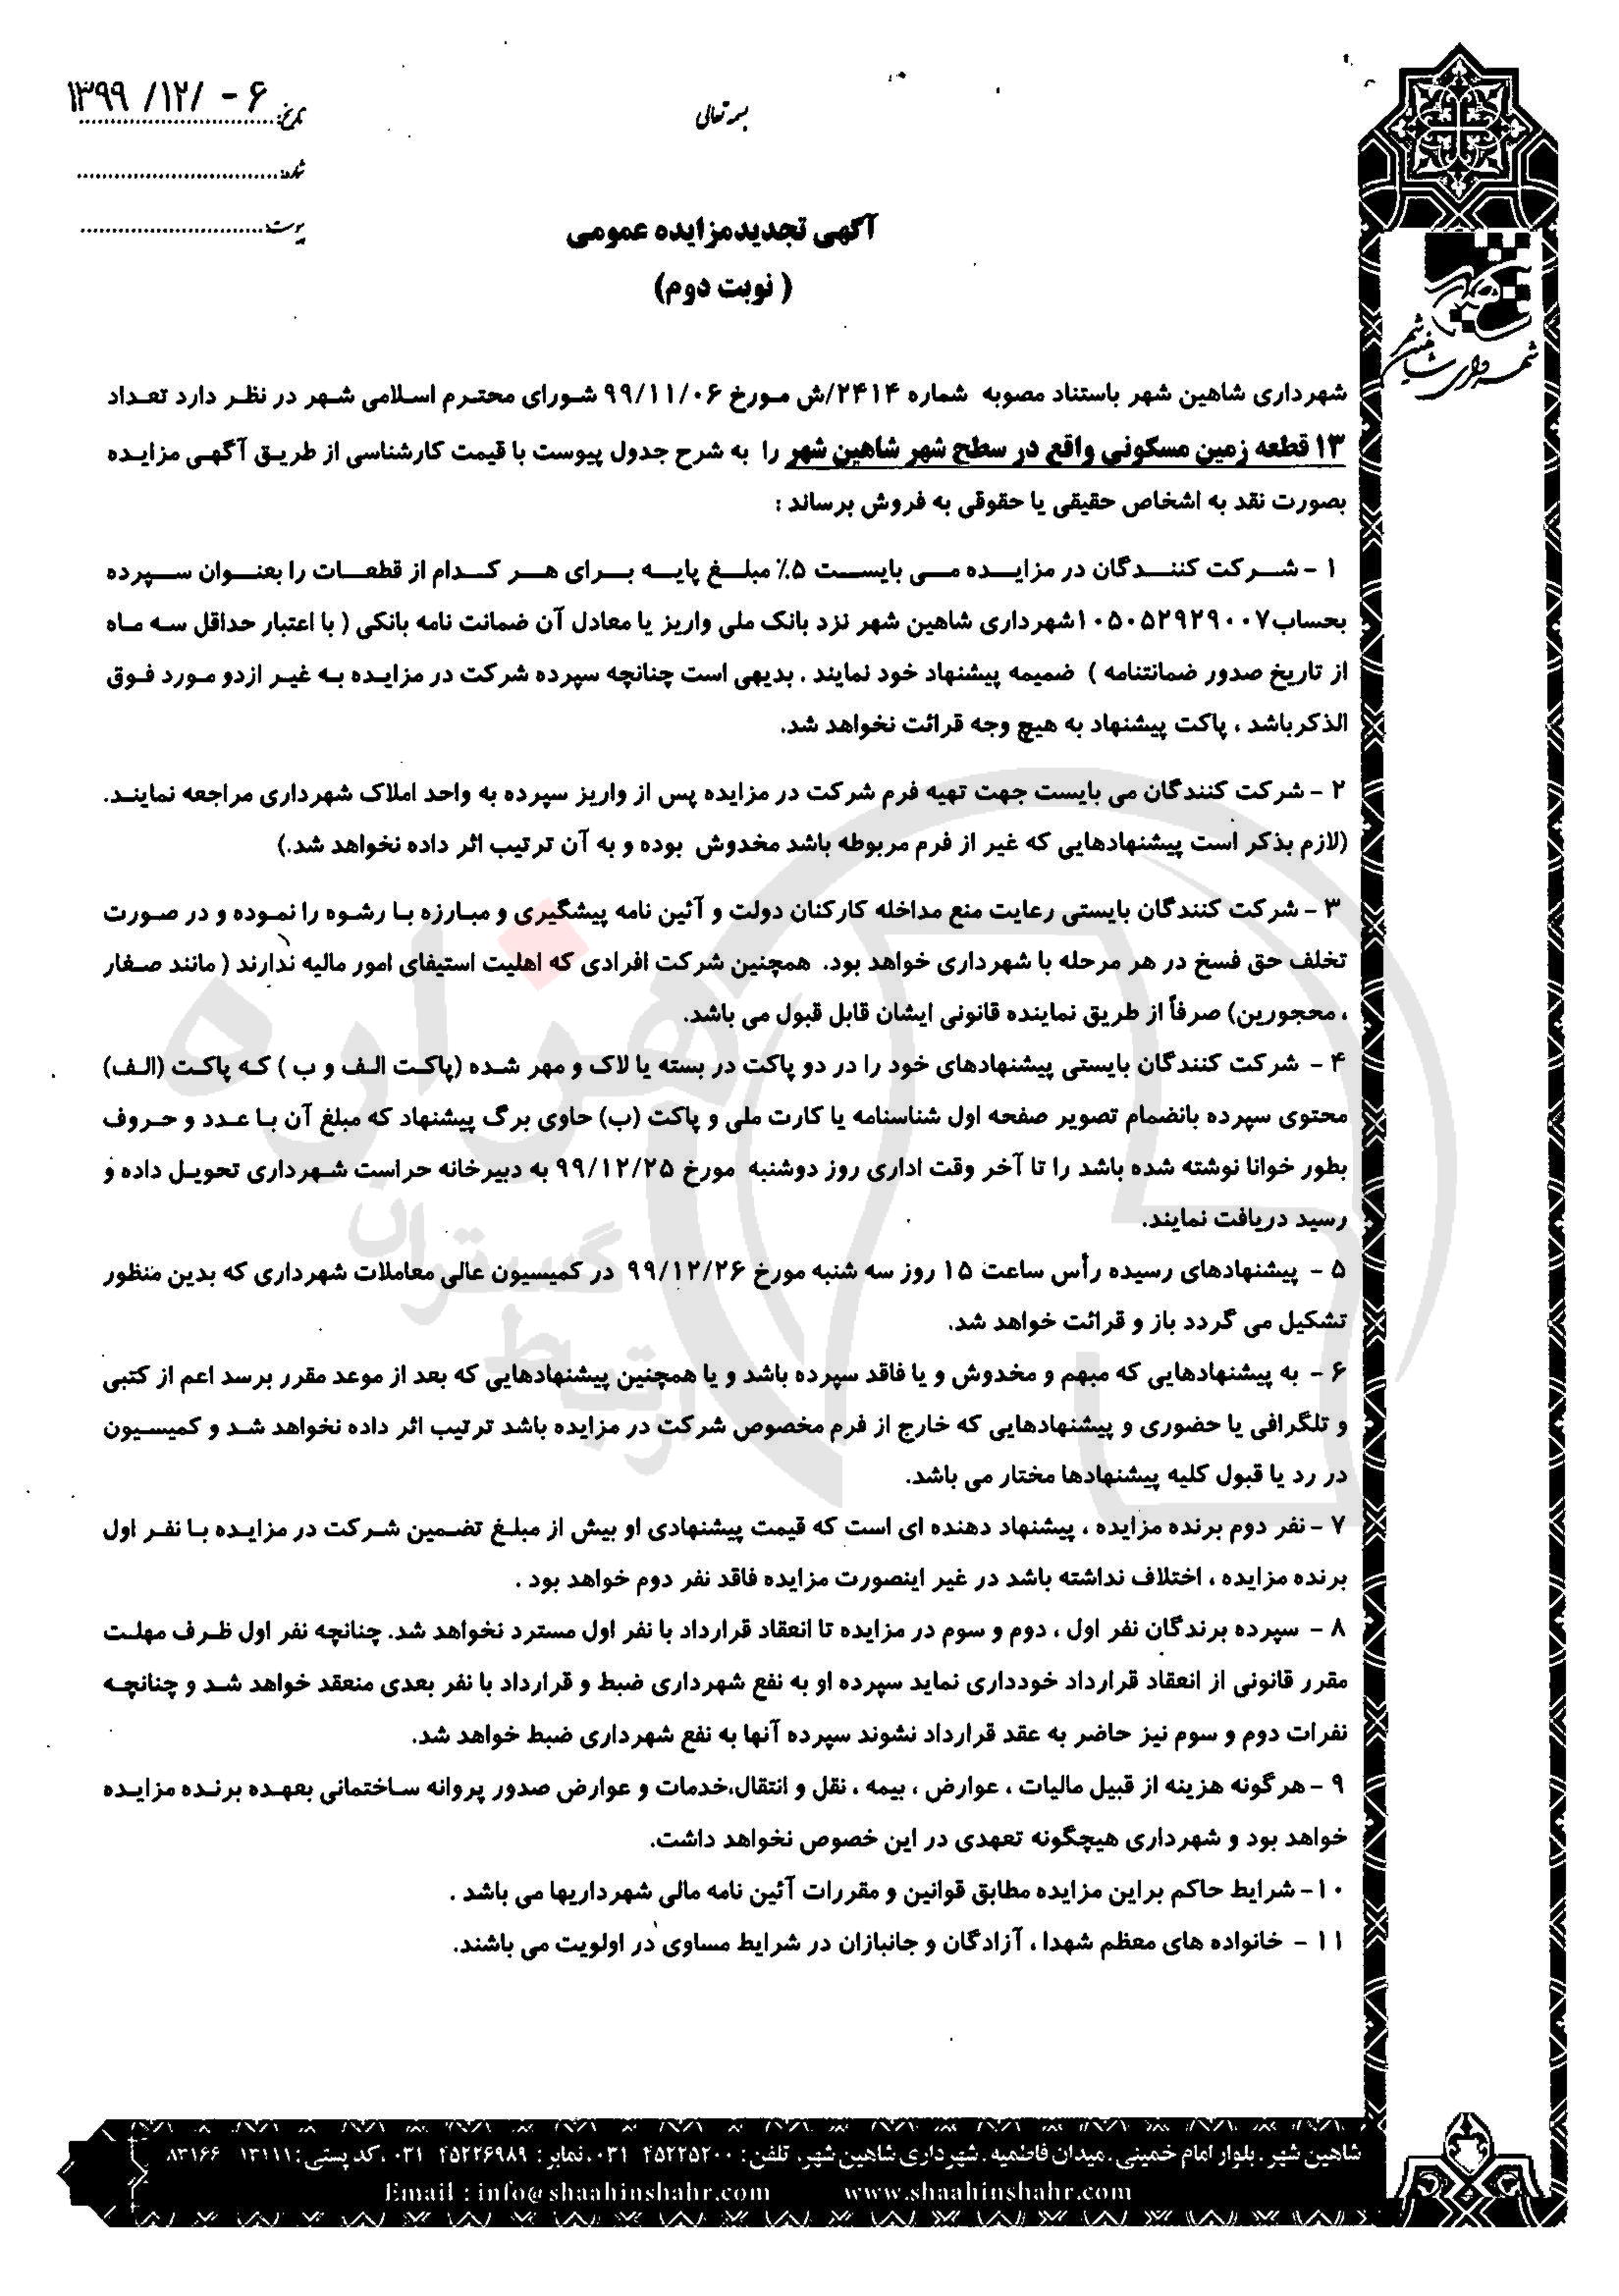 بسمه تعالی
تاریخ: ۱۳۹۹ /۱۲/ -۶
شماره:
پیوست:
آگهی تجدیدمزایده عمومی
( نوبت دوم)
شهرداری شاهین شهر
شهرداری شاهین شهر باستناد مصوبه شماره ۲۴۱۴/ش مورخ ۹۹/۱۱/۰۶ شورای محترم اسلامی شهر در نظر دارد تعداد
۱۳ قطعه زمین مسکونی واقع در سطح شهر شاهین شهر را به شرح جدول پیوست با قیمت کارشناسی از طریق آگهی مزایده
بصورت نقد به اشخاص حقیقی یا حقوقی به فروش برساند :
۱ - شرکت کنندگان در مزایده می بایست ۵٪ مبلغ پایه برای هر کدام از قطعات را بعنوان سپرده
بحساب۱۰۵۰۵۲۹۲۹۰۰۷شهرداری شاهین شهر نزد بانک ملی واریز یا معادل آن ضمانت نامه بانکی ( با اعتبار حداقل سه ماه
از تاریخ صدور ضمانتنامه ) ضمیمه پیشنهاد خود نمایند . بدیهی است چنانچه سپرده شرکت در مزایده به غیر ازدو مورد فوق
الذکرباشد ، پاکت پیشنهاد به هیچ وجه قرائت نخواهد شد.
۲ - شرکت کنندگان می بایست جهت تهیه فرم شرکت در مزایده پس از واریز سپرده به واحد املاک شهرداری مراجعه نمایند.
(لازم بذکر است پیشنهادهایی که غیر از فرم مربوطه باشد مخدوش بوده و به آن ترتیب اثر داده نخواهد شد.)
۳ - شرکت کنندگان بایستی رعایت منع مداخله کارکنان دولت و آئین نامه پیشگیری و مبارزه با رشوه را نموده و در صورت
تخلف حق فسخ در هر مرحله با شهرداری خواهد بود. همچنین شرکت افرادی که اهلیت استیفای امور مالیه ندارند ( مانند صغار
، محجورین) صرفاً از طریق نماینده قانونی ایشان قابل قبول می باشد.
۴ - شرکت کنندگان بایستی پیشنهادهای خود را در دو پاکت در بسته یا لاک و مهر شده (پاکت الف و ب ) که پاکت (الف)
محتوی سپرده بانضمام تصویر صفحه اول شناسنامه یا کارت ملی و پاکت (ب) حاوی برگ پیشنهاد که مبلغ آن با عدد و حروف
بطور خوانا نوشته شده باشد را تا آخر وقت اداری روز دوشنبه مورخ ۹۹/۱۲/۲۵ به دبیرخانه حراست شهرداری تحویل داده و
رسید دریافت نمایند.
۵ - پیشنهادهای رسیده رأس ساعت ۱۵ روز سه شنبه مورخ ۹۹/۱۲/۲۶ در کمیسیون عالی معاملات شهرداری که بدین منظور
تشکیل می گردد باز و قرائت خواهد شد.
۶ - به پیشنهادهایی که مبهم و مخدوش و یا فاقد سپرده باشد و یا همچنین پیشنهادهایی که بعد از موعد مقرر برسد اعم از کتبی
و تلگرافی یا حضوری و پیشنهادهایی که خارج از فرم مخصوص شرکت در مزایده باشد ترتیب اثر داده نخواهد شد و کمیسیون
در رد یا قبول کلیه پیشنهادها مختار می باشد.
۷ - نفر دوم برنده مزایده ، پیشنهاد دهنده ای است که قیمت پیشنهادی او بیش از مبلغ تضمین شرکت در مزایده با نفر اول
برنده مزایده ، اختلاف نداشته باشد در غیر اینصورت مزایده فاقد نفر دوم خواهد بود .
۸ - سپرده برندگان نفر اول ، دوم و سوم در مزایده تا انعقاد قرارداد با نفر اول مسترد نخواهد شد. چنانچه نفر اول ظرف مهلت
مقرر قانونی از انعقاد قرارداد خودداری نماید سپرده او به نفع شهرداری ضبط و قرارداد با نفر بعدی منعقد خواهد شد و چنانچه
نفرات دوم و سوم نیز حاضر به عقد قرارداد نشوند سپرده آنها به نفع شهرداری ضبط خواهد شد.
۹ - هرگونه هزینه از قبیل مالیات ، عوارض ، بیمه ، نقل و انتقال،خدمات و عوارض صدور پروانه ساختمانی بعهده برنده مزایده
خواهد بود و شهرداری هیچگونه تعهدی در این خصوص نخواهد داشت.
۱۰- شرایط حاکم براین مزایده مطابق قوانین و مقررات آئین نامه مالی شهرداریها می باشد .
۱۱ - خانواده های معظم شهدا ، آزادگان و جانبازان در شرایط مساوی در اولویت می باشند.
هزاره
گستران
ارتباط
شاهین شهر . بلوار امام خمینی . میدان فاطمیه . شهرداری شاهین شهر. تلفن : ۴۵۲۲۵۲۰۰ ۰۳۱ . نمابر : ۴۵۲۲۶۹۸۹ ۰۳۱ . کد پستی : ۱۳۱۱۱ ۸۳۱۶۶
Email : info@shaahinshahr.com www.shaahinshahr.com